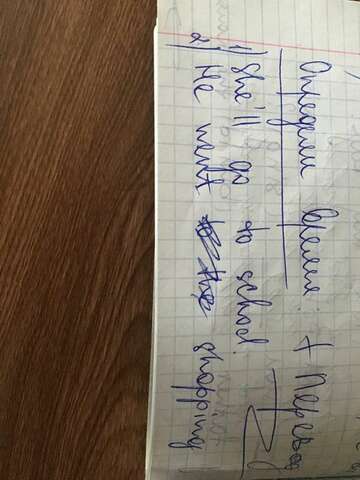 Определи время: + Перевод
1) She'll go to school.
2) He went shopping